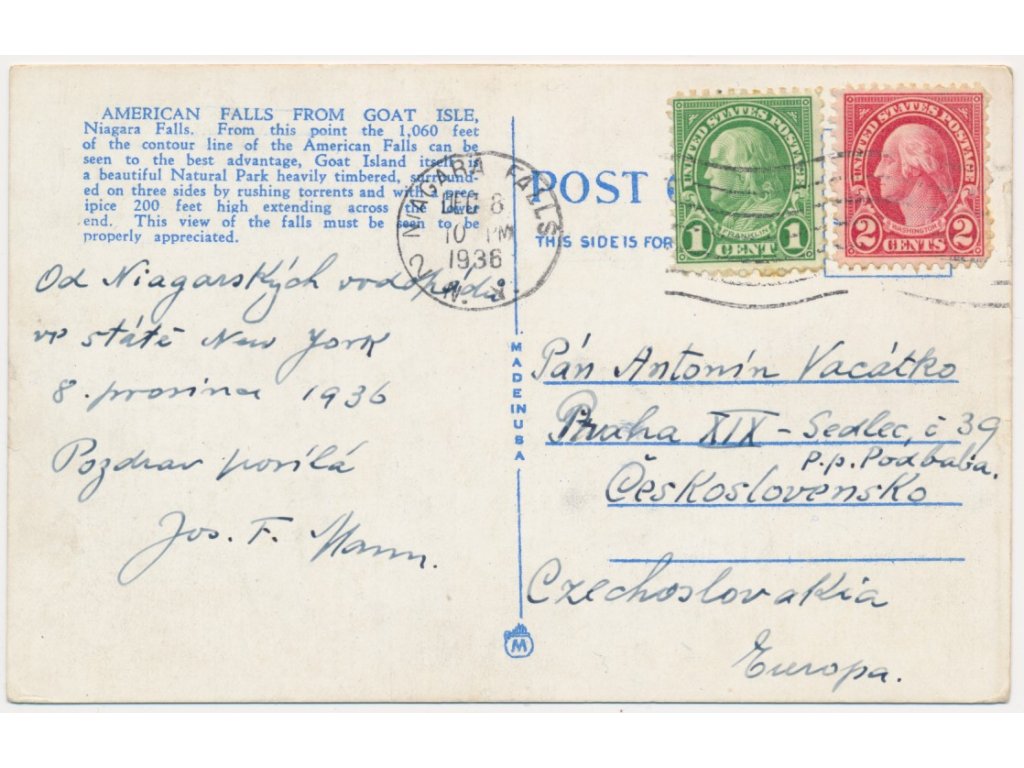 AMERICAN FALLS FROM GOAT ISLE,
Niagara Falls. From this point the 1,060 feet
of the contour line of the American Falls can be
seen to the best advantage, Goat Island itself is
a beautiful Natural Park heavily timbered, surround-
ed on three sides by rushing torrents and with a prec-
ipice 200 feet high extending across the lower
end. This view of the falls must be seen to be
properly appreciated.
Od Niagarských vodopádů
ve státě New York
8. prosince 1936
Pozdrav posílá
Jos. F. Mann.
NIAGARA FALLS
DEC 8
10 PM
1936
N. Y.
2
MADE IN USA
M
POST
THIS SIDE IS FOR
UNITED STATES POSTAGE
FRANKLIN
1 CENT 1
UNITED STATES POSTAGE
WASHINGTON
2 CENTS 2
Pán Antonín Vacátko
Praha XIX - Sedlec, č 39
p.p. Podbaba.
Československo
Czechoslovakia
Europa.